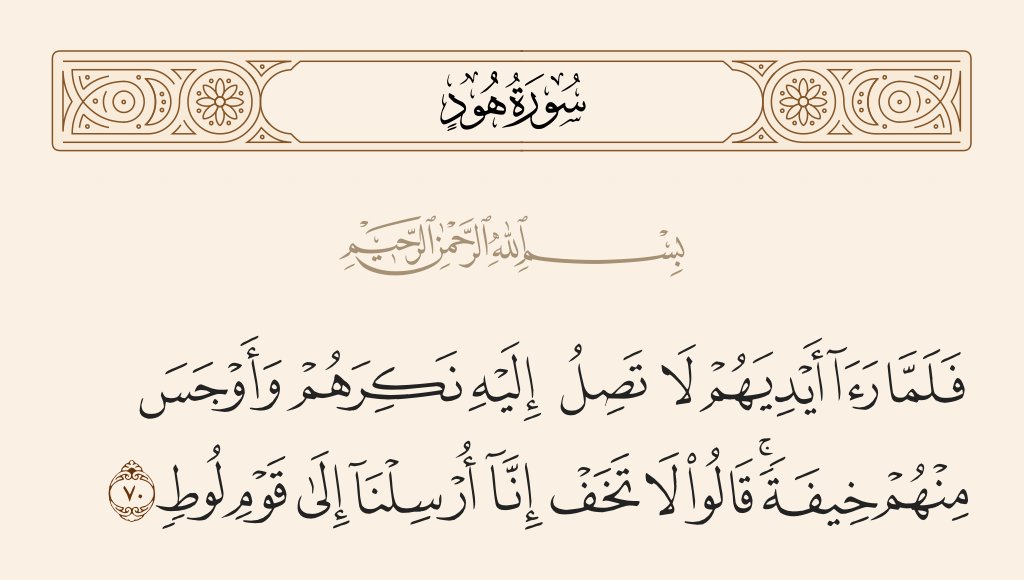 سُورَةُ هُودٍ
بِسْمِ ٱللَّهِ ٱلرَّحْمَٰنِ ٱلرَّحِيمِ
فَلَمَّا رَءَآ أَيْدِيَهُمْ لَا تَصِلُ إِلَيْهِ نَكِرَهُمْ وَأَوْجَسَ
مِنْهُمْ خِيفَةًۚ قَالُوا۟ لَا تَخَفْ إِنَّآ أُرْسِلْنَآ إِلَىٰ قَوْمِ لُوطٍ ٧٠